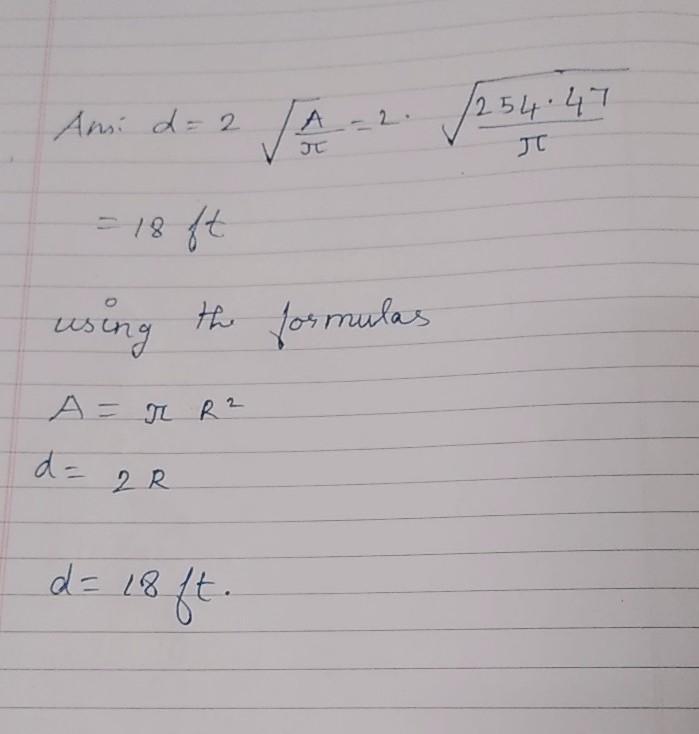 Ans: d = 2 √(A/π) = 2 · √(254.47/π)
= 18 ft
using the formulas
A = π R²
d = 2 R
d = 18 ft.